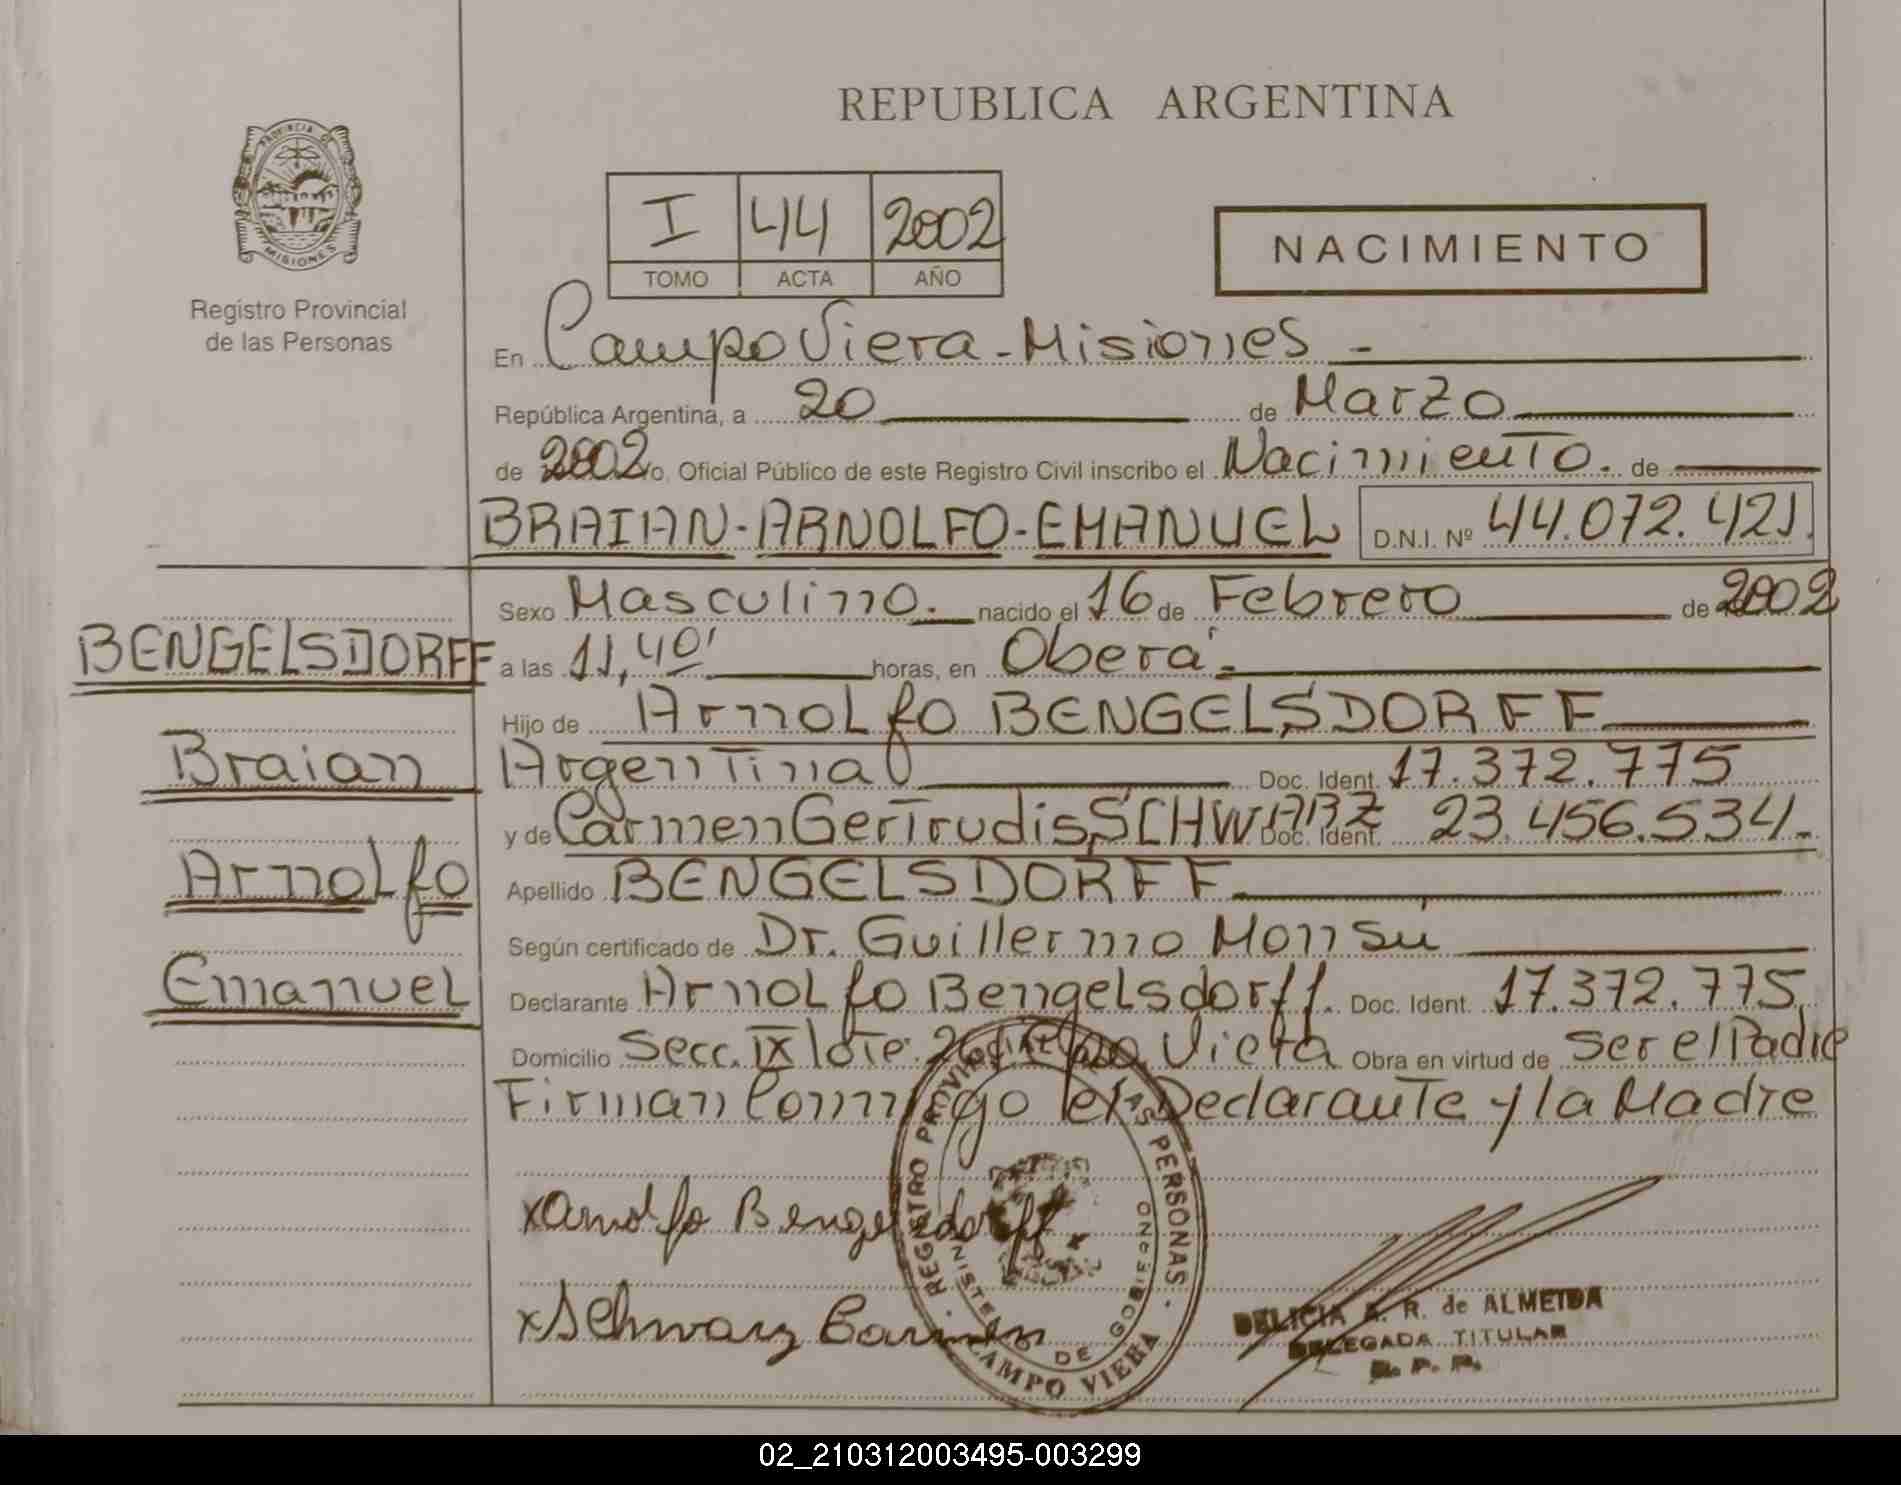 REPUBLICA ARGENTINA
PROVINCIA DE
MISIONES
Registro Provincial
de las Personas
I 44 2002
TOMO ACTA AÑO
NACIMIENTO
En Campo Viera - Misiones -
República Argentina, a 20 de Marzo
de 2002 yo, Oficial Público de este Registro Civil inscribo el Nacimiento. de
BRAIAN-ARNOLFO-EMANUEL D.N.I. Nº 44.072.421.
Sexo Masculino. nacido el 16 de Febrero de 2002
BENGELSDORFF
a las 11,40' horas, en Oberá.
Hijo de Arnolfo BENGELSDORFF
Braian
Argentina Doc. Ident. 17.372.775
y de Carmen Gertrudis SCHWARZ Doc. Ident. 23.456.534.
Arnolfo
Apellido BENGELSDORFF
Según certificado de Dr. Guillermo Monsú
Emanuel
Declarante Arnolfo Bengelsdorff. Doc. Ident. 17.372.775
Domicilio Secc. IX lote Viera Obra en virtud de ser el Padre
Firman Conmigo el Declarante y la Madre
xArnolfo Bengelsdorff
xSchwarz Carmen
REGISTRO PROVINCIAL DE LAS PERSONAS
MINISTERIO DE GOBIERNO
CAMPO VIERA
DELICIA R. de ALMEIDA
DELEGADA TITULAR
R. P. P.
02_210312003495-003299